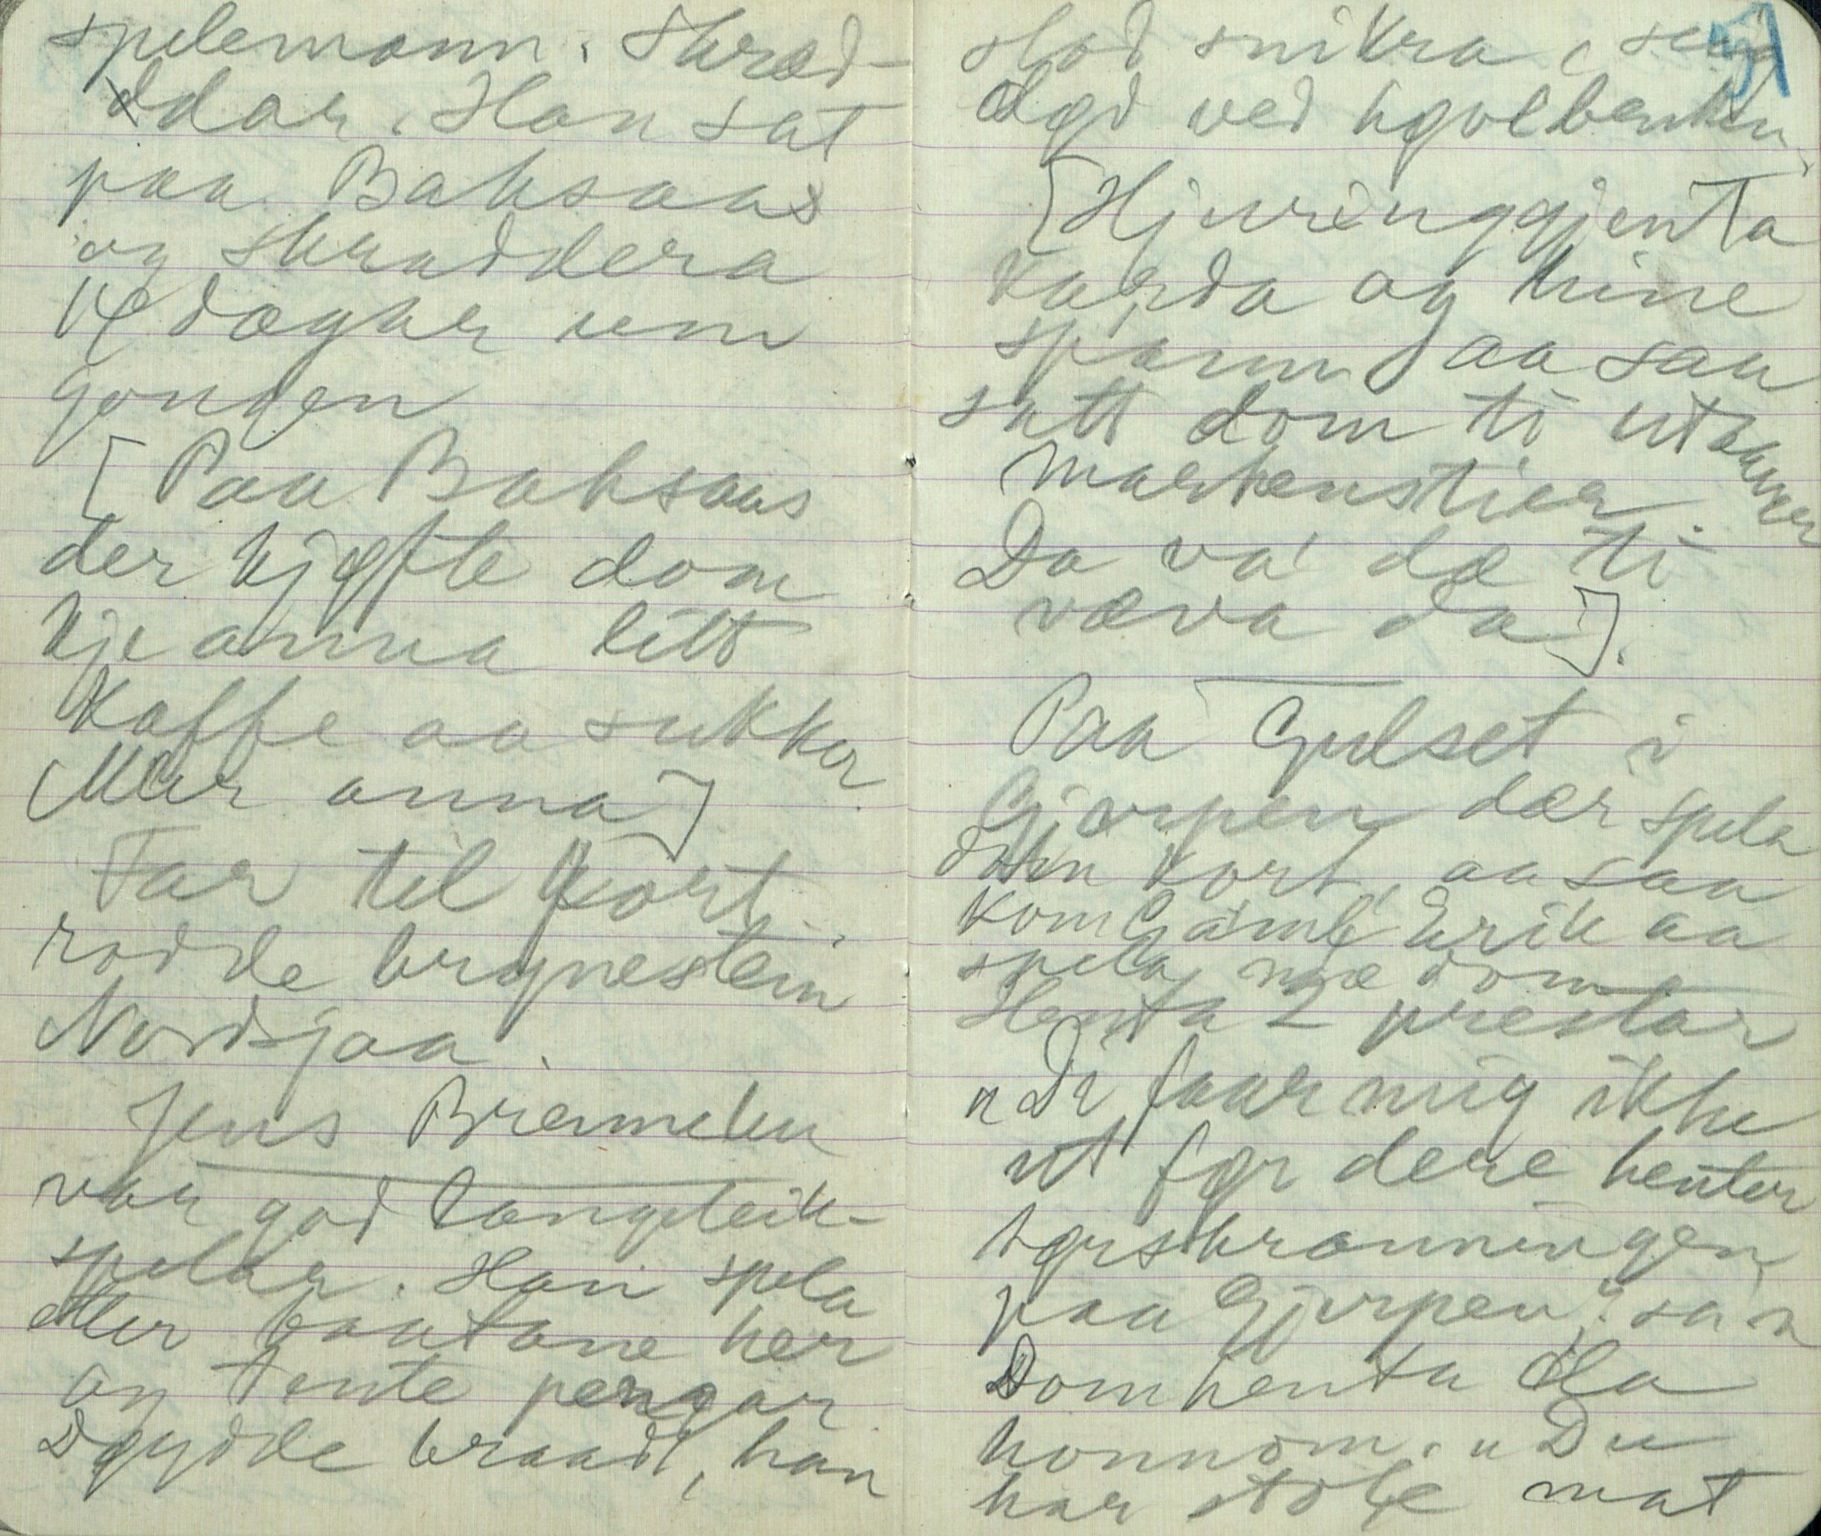 spelemann. Skræd-
ddar. Han sat
paa Baksaas
og skræddera
14 dagar um
gongen
[Paa Baksaas
der kjøfte dom
kje anna litt
Kaffe aa sukker.
Mer anna]
Far til Kort
rodde brynestein
Nordsjaa.
Jens Bremmeken
var god langeleik-
spelar. Han spela
etter baatane her
og tente pengar
Døydde braadt, han
stod snikra,
død ved høvelbenken.
[Hjuringgjenta
karda og kine
spann aa saa
satt dom ti utanver
Martenstier.
Da va' dæ ti
væva da].
Paa Gulset i
Gjerpen dær spela
dom Kort, aa saa
kom Gamle Erik aa
spela mæ dom
Henta 2 prestar
"Di faar mig ikke
ut før dere henter
tørstranningen
paa Gjerpen" sa'n
Dom henta da
honnom. "Du
har stole mat
51